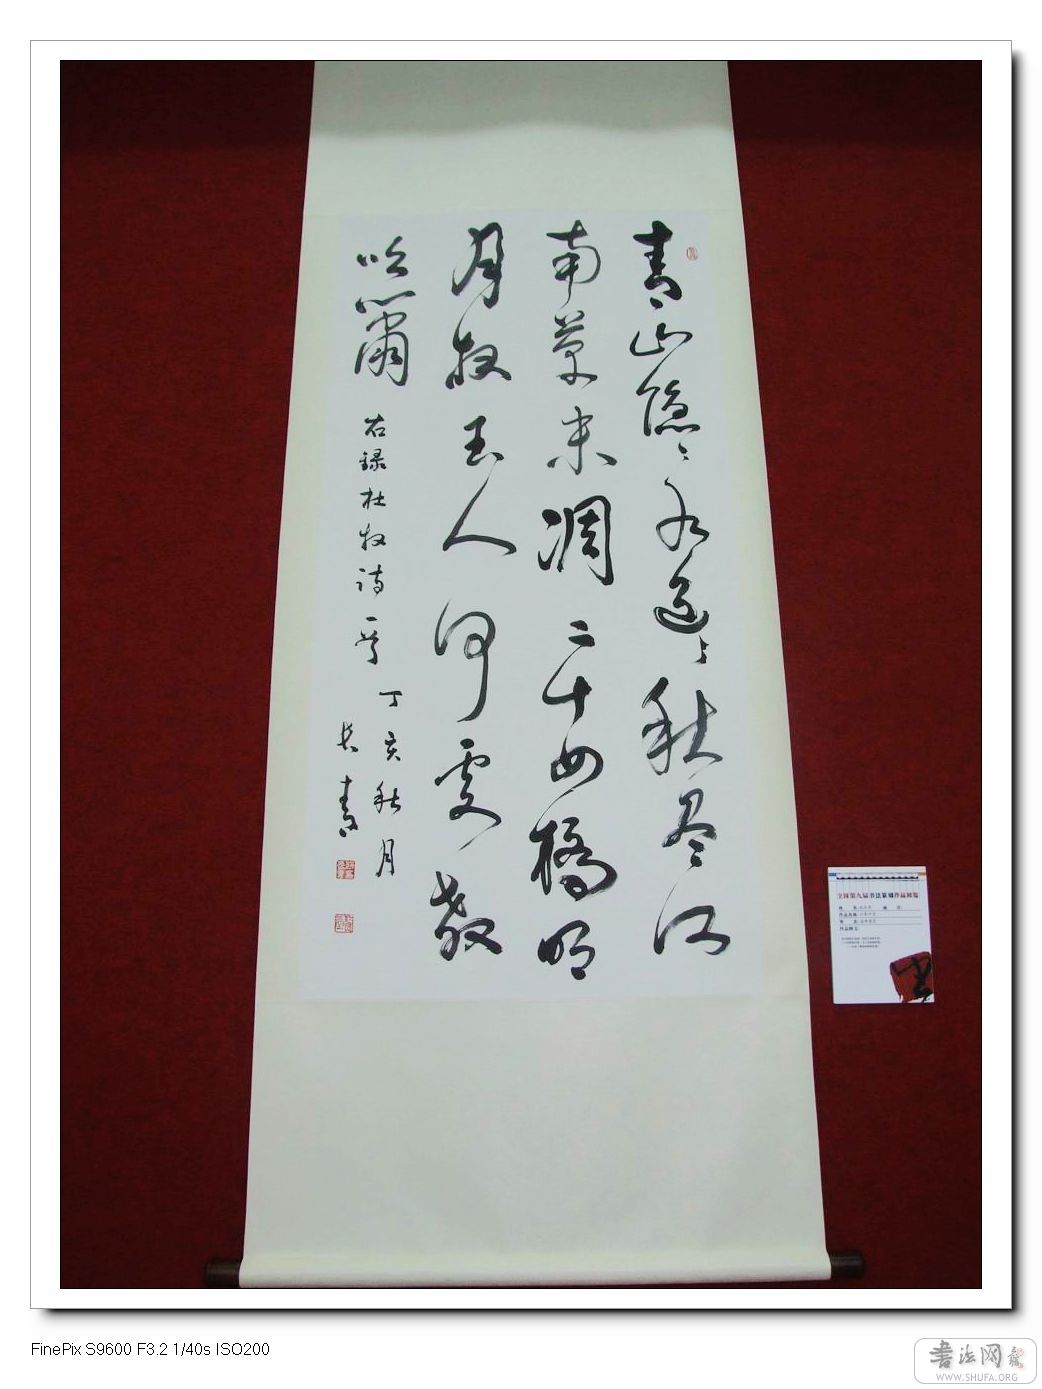 青山隐〻水遥〻秋尽江
南草未凋二十四桥明
月夜玉人何处教
吹箫
右録杜牧诗一首
丁亥秋月
长青
全国第九届书法篆刻作品展览
FinePix S9600 F3.2 1/40s ISO200
書法网
WWW.SHUFA.ORG